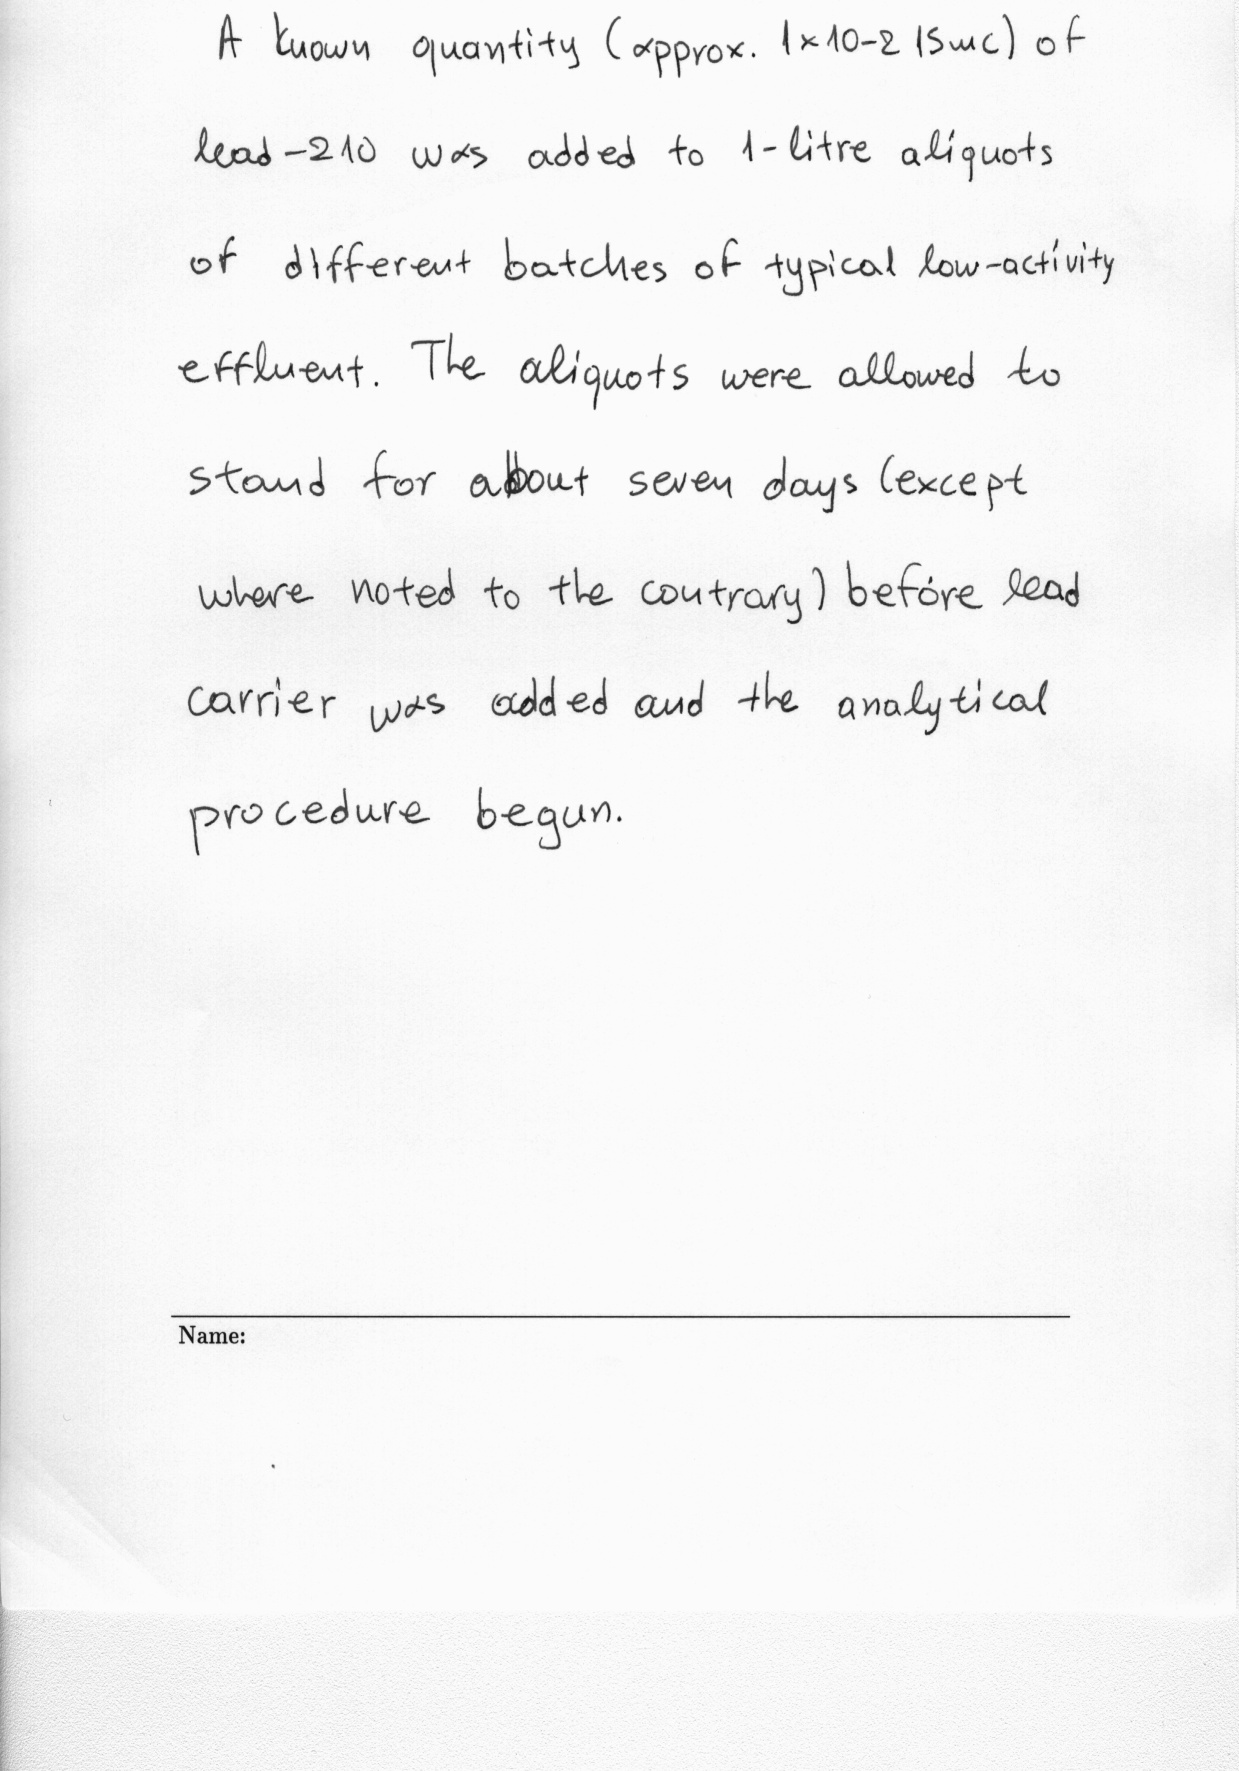 A known quantity (approx. 1x10-2 15mc) of
lead-210 was added to 1-litre aliquots
of different batches of typical low-activity
effluent. The aliquots were allowed to
stand for about seven days (except
where noted to the contrary) before lead
carrier was added and the analytical
procedure begun.
Name: